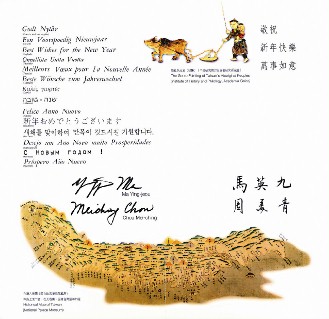 Godt Nytår
Een Voorspoedig Nieuwjaar
Best Wishes for the New Year
Onnellista Uutta Vuotta
Meilleurs Vœux pour La Nouvelle Année
Beste Wünsche zum Jahreswechsel
Felice Anno Nuovo
新年おめでとうございます
새해를 맞이하여 만복이 깃드시길 기원합니다.
Desejo um Ano Novo muito Prosperidades
С НОВЫМ ГОДОМ !
Próspero Año Nuevo
敬祝
新年快樂
萬事如意
Ma Ying-jeou
Chou Mei-ching
馬英九
周美青
Historical Map of Taiwan